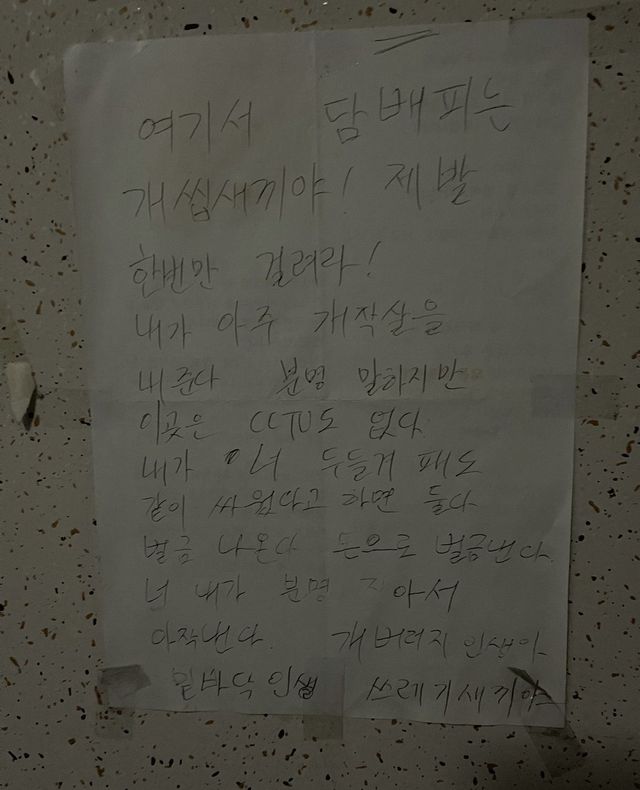 여기서 담배피는
개씹새끼야! 제발
한번만 걸려라!
내가 아주 개작살을
내준다 분명 말하지만
이곳은 CCTV도 없다
내가 너 두들겨 패도
같이 싸웠다고 하면 둘다
벌금 나온다 돈으로 벌금낸다.
너 내가 분명 잡아서
아작낸다. 개버러지 인생아
밑바닥 인생 쓰레기새끼야